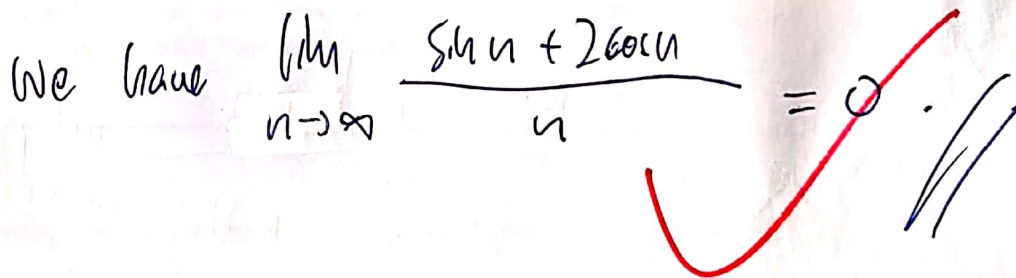 We have lim n→∞ (sin n + 2cos n)/n = 0.